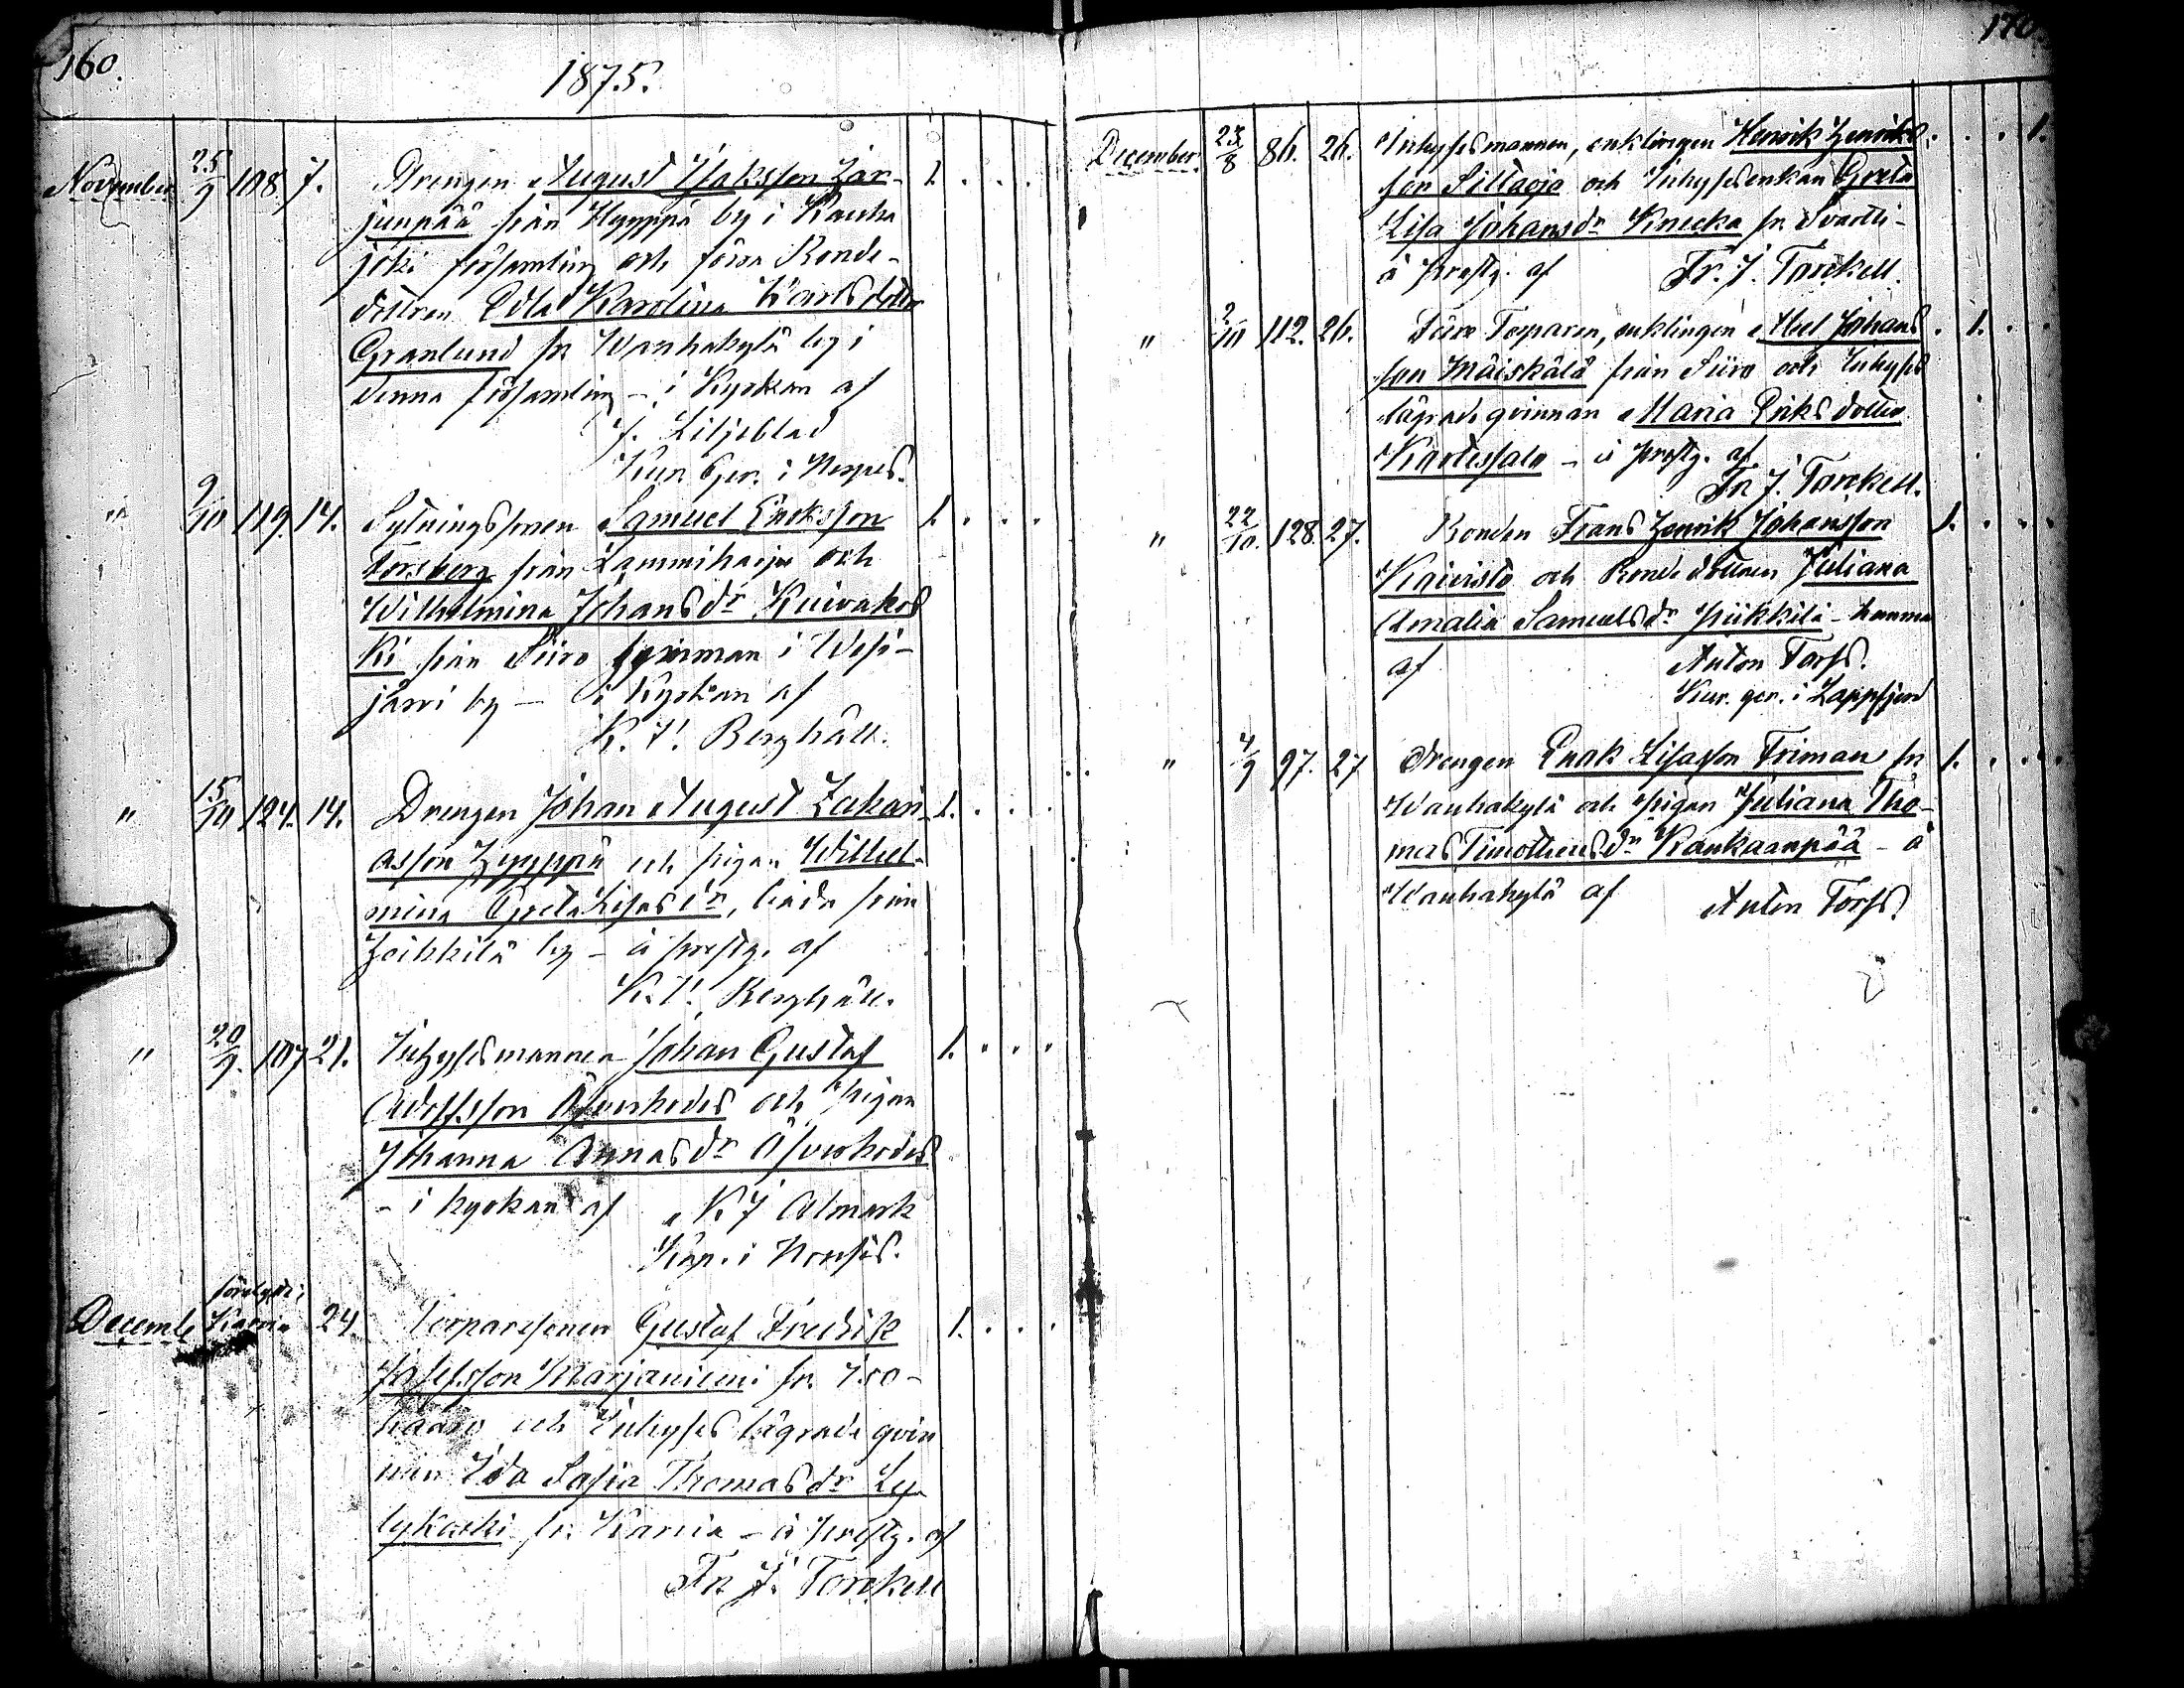 160.
1875.
November 25/9 108. 7. Drengen August Isaksson Har- 1. . . .
junpää från Hyyppä by i Kauha
joki församling och förra Bonde-
dottren Edla Karolina Karlsdotter
Granlund fr Wanhakylä by i
denna församling – i Kyrkan af
J. Liljeblad
" 9/10 119. 14. Sytningssonen Samuel Eriksson 1. . . .
Forsberg från Lammiharju och
Wilhelmina Johansdr Kuivakos
ki från Siiro i Wesi-
järvi by – i Kyrkan af
K. V. Berghäll.
" 15/10 124. 14. Drengen Johan August Zakari- 1. . . .
asson Hyyppä och pigan Wilhel-
mina Greta Lisas dr, båda från
Heikkilä by – å prestg. af
K. V. Berghäll.
" 20/9. 107 21. Inhysesmannen Johan Gustaf 1. . . .
Adolfsson Åfverhodes och pigan
Johanna Annas dr Åfverhodes
– i kyrkan af K J Almark
Kap. i Nerpes.
Decemb Karvia 24. Torparesonen Gustaf Fredrik 1. . . .
Josefsson Marjaniemi fr. Iso-
och Inhyses lägrade qvin
nan Ida Sofia Thomasdr Ly
lykoski fr. Karvia – å prestg. af
Fr. J. Tarckell
170.
December 23/8 86. 26. Inhysesmannen, enklingen Henrik Henriks- . . . 1.
son Sillaoja och Inhysesenkan Greta
Lisa Johansdr Knecka fr. Svartti-
å prestg. af Fr. J. Tarckell.
" 2/10 112. 26. Förre Torparen, enklingen Abel Johans . 1. . .
son Mäiskälä från Siiro och Inhyses
lägrade qvinnan Maria Eriksdotter
– å prestg. af
Fr J. Tarckell.
" 22/10. 128. 27. Bonden Frans Henrik Johansson 1. . . .
Koivisto och Bondedottren Juliana
Amalia Samuelsdr Piikkilä – hemma
af Anton Forss.
Kur. ger. i Lappfjerd
" 4/9 97. 27. Drengen Enok Lisasson Friman fr 1. . . .
Wanhakylä och pigan Juliana Tho-
mas Timotheusdr Kankaanpää – å
Wanhakylä af Anton Forss.